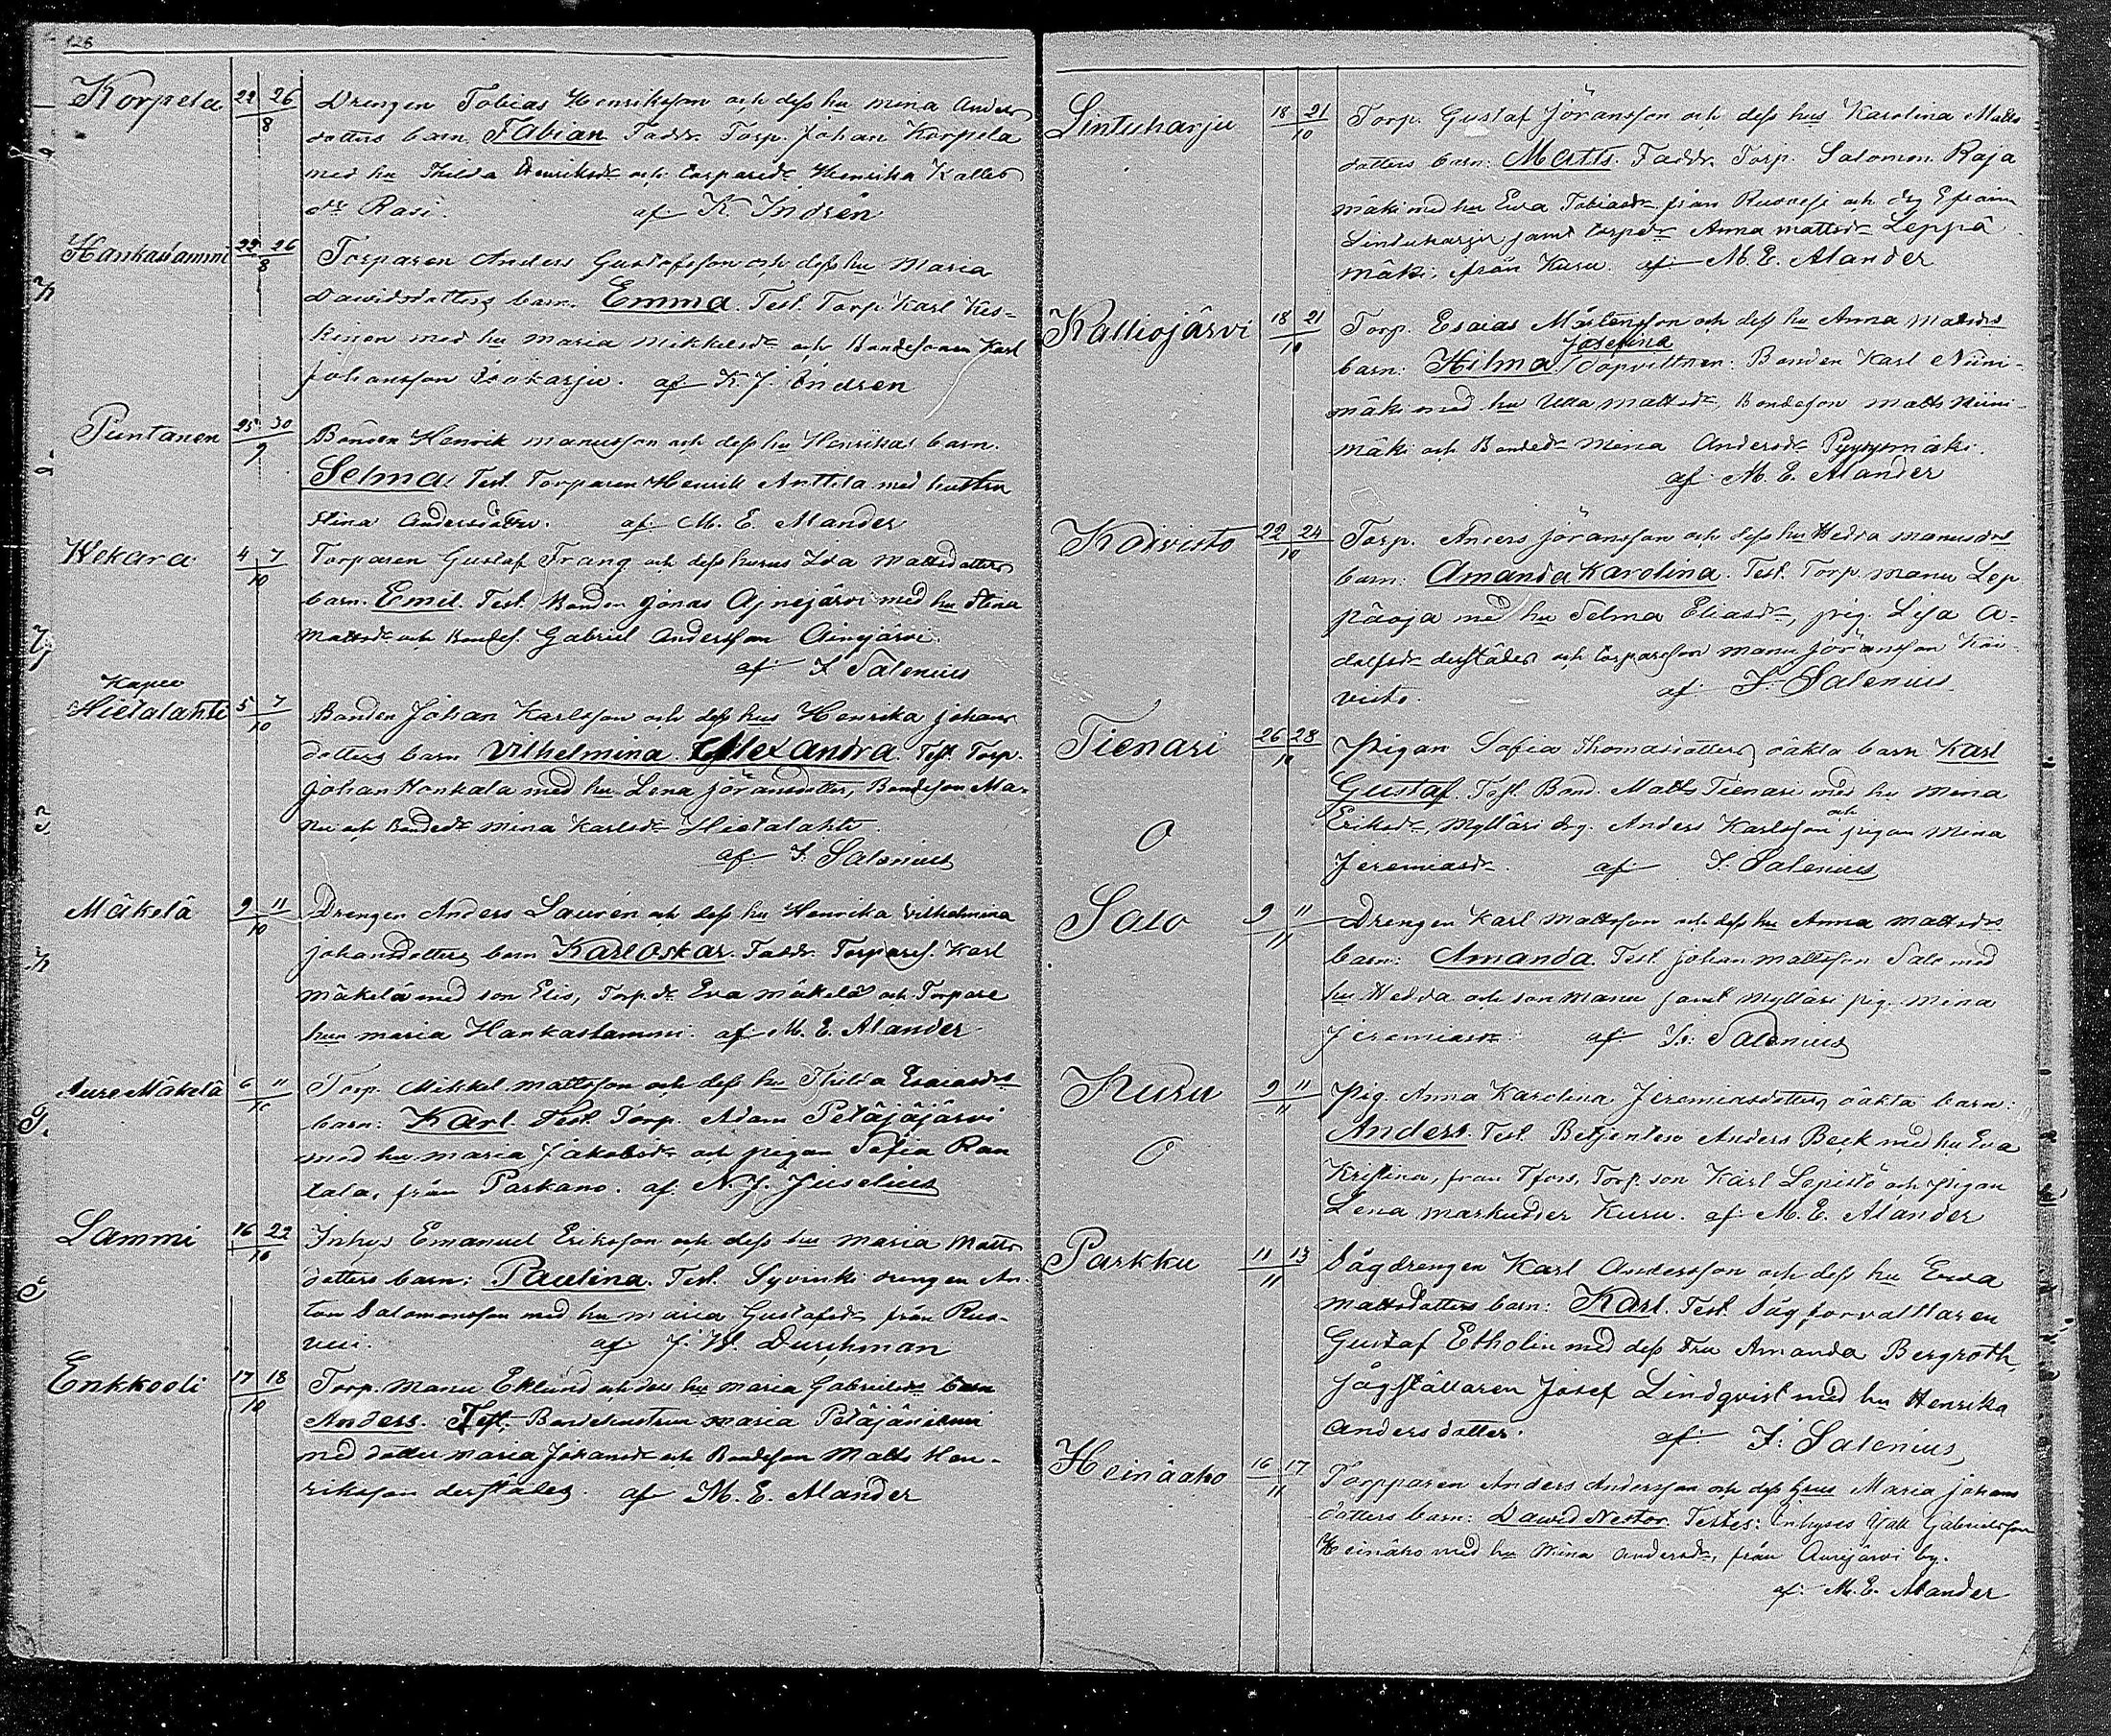 126
Korpela 22 26 / 8 Drengen Tobias Henriksson och dess hu Mina Anders
dotters barn Fabian Faddr. Torp. Johan Korpela
med hu Thilda Henriksdr och torparedr Henrika Kalles
dr Rasi. af K Indrén
Hankaslammi 22 26 / 8 Torparen Anders Gustafsson och dess hu Maria
Davidsdotters barn. Emma. Test. Torp. Karl Kes-
kinen med hu Maria Mikkelsdr och Bondesonen Karl
Johansson Isokarju. af K. J. Indrén
Puntanen 25 30 / 9 Bonden Henrik Manusson och dess hu Henrikas barn.
Selma. Test. Torparen Henrik Anttila med hustru
Stina Andersdotter. af M. E. Alander
Wekara 4 7 / 10 Torparen Gustaf Frang och dess hurus Ida Mattsdotters
barn. Emil. Test. Bonden Jonas Ajnejärvi med hu Stina
Mattsdr och Bondes. Gabriel Andersson Ainejärvi.
af F Salenius
Kapee
Hietalahti 5 7 / 10 Bonden Johan Karlsson och dess hus Henrika Johans
dotters barn Vilhelmina Alexandra. Test. Torp.
Johan Honkala med hu Lena Jöransdotter, Bondeson Ma-
nu och Bondedr Mina Karlsdr Hietalahti.
af F. Salenius
Mäkelä 9 11 / 10 Drengen Anders Saurén och dess hu Henrika Vilhelmina
Johansdotters barn Karl Oskar. Faddr. Torpares. Karl
Mäkelä med son Elis, Torp.dr Eva Mäkelä och Torpare
hun Maria Hankaslammi. af M. E. Alander
Aure Mäkelä 6 11 / 10 Torp. Mikkel Mattsson och dess hu Thilda Esaiasdrs
barn: Karl. Test. Torp. Adam Petäjäjärvi
med hu Maria Jakobsdr och pigan Sofia Ran
tala, från Parkano. af N. J. Juselius
Lammi 16 22 / 10 Inhys Emanuel Eriksson och dess hu Maria Matts
dotters barn: Paulina. Test. Syvinki drengen An-
ton Salomonsson med hu Maria Gustafsdr från Ruo-
vesi. af J. W. Durchman
Enkkooli 17 18 / 10 Torp. Manu Eklund och dess hu Maria Gabrielsdrs barn
Anders. Test. Bondehustrun Maria Petäjäniemi
med dotter Maria Johansdr och Bondeson Matts Hen-
riksson derstädes. af M. E. Alander
Lintuharju 18 21 / 10 Torp. Gustaf Jöransson och dess hus Karolina Matts
dotters barn: Matts. Faddr. Torp. Salomon Raja
mäki med hu Eva Tobiasdr från Ruovesi och drg Efraim
Lintuharju samt torpedr Anna Mattsdr Leppä
mäki, från Kuru. af M. E. Alander
Kalliojärvi 18 21 / 10 Torp. Esaias Mårtensson och dess hu Anna Matsdrs
Josefina
barn: Hilma / dopvittnen: Bonden Karl Niini-
mäki med hu Ulla Mattsdr, Bondeson Matts Niini-
mäki och Bondedr Mina Andersdr Pyyrymäki.
af M. E. Alander
Koivisto 22 24 / 10 Torp. Anders Jöransson och dess hu Hedda Manusdrs
barn: Amanda Karolina. Test. Torp Manu Lep
päoja med hu Selma Eliasdr, pig. Lisa A-
dolfsdr derstädes och torpareson Manu Jöransson Koi-
visto. af F. Salenius
Tienari 26 28 / 10 Pigan Sofia Thomasdotters oäkta barn Karl
Gustaf. Test. Bond. Matts Tienari med hu Mina
Eriksdr, Mylläri drg. Anders Karlsson och pigan Mina
O
Jeremiasdr. af F. Salenius
Salo 9 11 / 11 Drengen Karl Mattsson och dess hu Anna Mattsdrs
barn: Amanda. Test. Johan Mattsson Salo med
hu Hedda och son Manu samt Mylläri pig. Mina
Jeremiasdr. af F. Salenius
Kuru 9 11 / 11 Pig. Anna Karolina Jeremiasdotters oäkta barn:
Anders. Test. Betjenten Anders Beck med hu Eva
O
Kristina, från Tfors, Torp. son Karl Lepistö och pigan
Lena Markudser Kuru. af M. E. Alander
Parkku 11 13 / 11 Sågdrengen Karl Andersson och dess hu Evva
Mattsdotters barn: Karl. Test. Sågforvalttaren
Gustaf Etholin med dess Fru Amanda Bergroth,
sågställaren Josef Lindqvist med hu Henrika
Andersdotter. af F. Salenius
Heinäaho 16 17 / 11 Torpparen Anders Andersson och dess hus Maria Johans
dotters barn: David Nestor. Testes: Inhyses Gabrielsson
Heinäho med hu Mina Andersdr, från Aurejärvi by.
af M. E. Alander